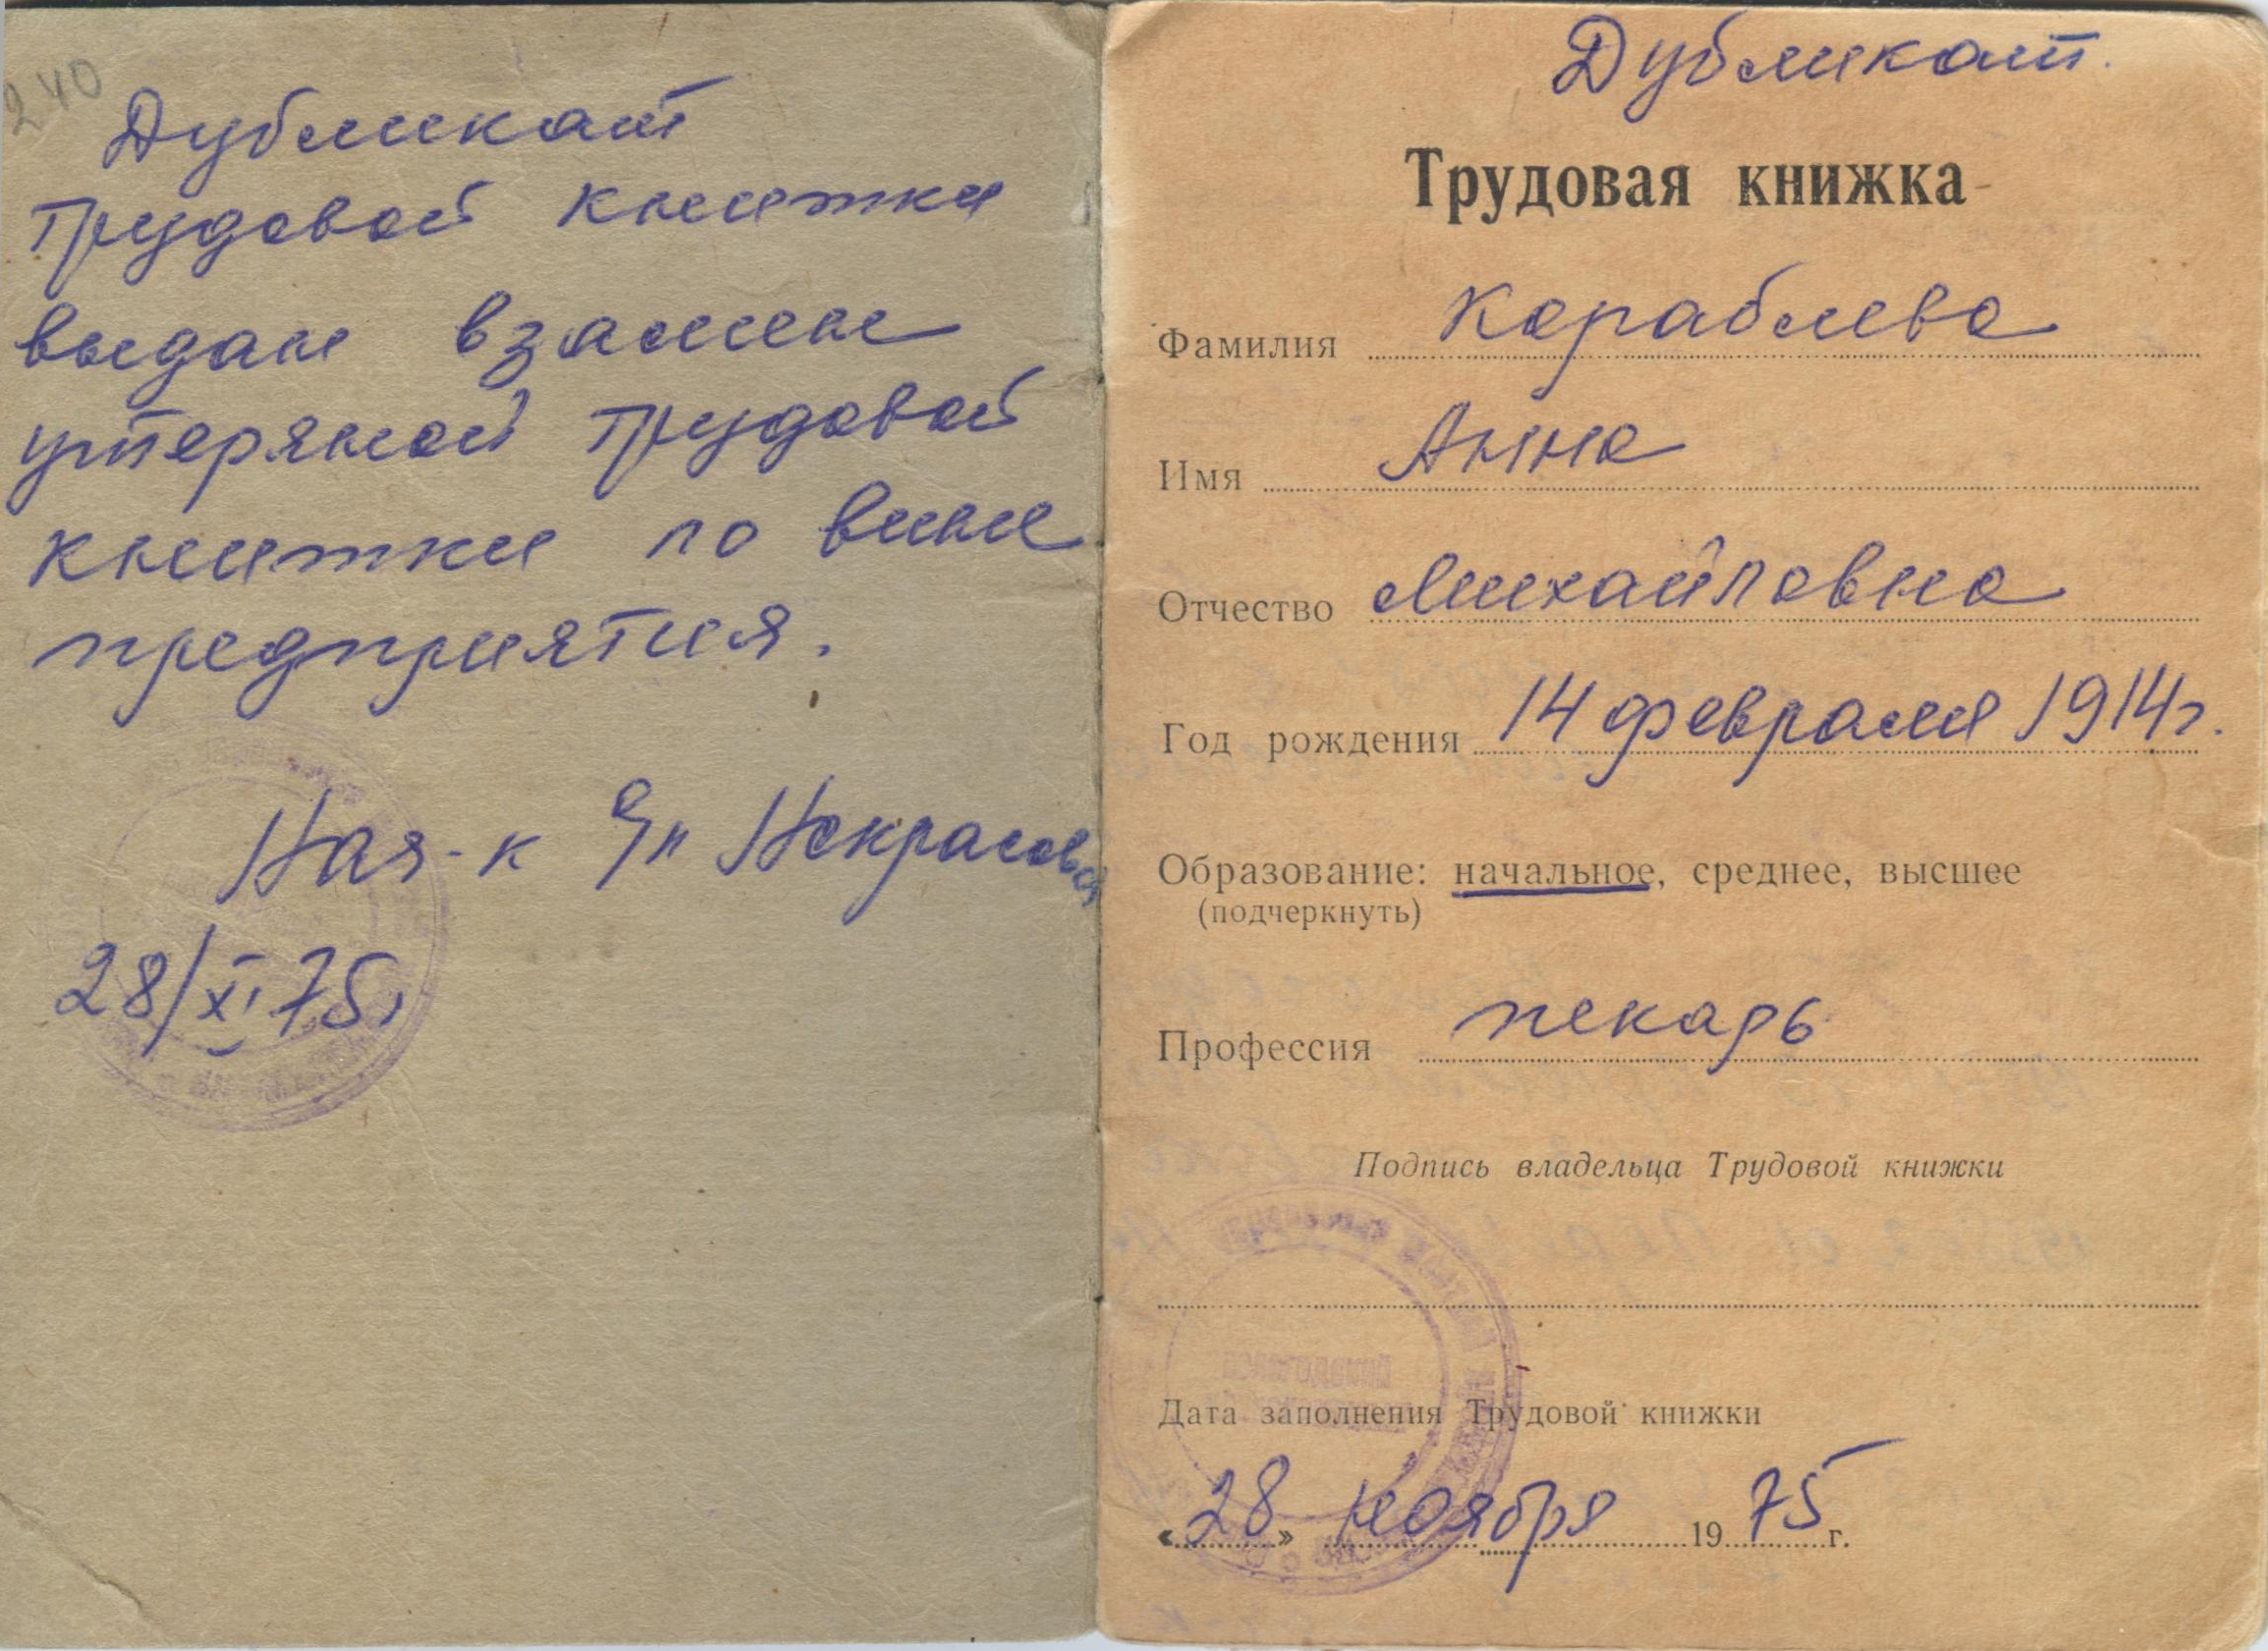 240
Дубликат
трудовой книжки
выдан взамен
утеряной трудовой
книжки по вине
предприятия.
Нач-к Яп Некрасова
28/XI 75г
Дубликат.
Трудовая книжка
Фамилия Кораблева
Имя Анна
Отчество Михайловна
Год рождения 14 февраля 1914г.
Образование: начальное, среднее, высшее
(подчеркнуть)
Профессия пекарь
Подпись владельца Трудовой книжки
Дата заполнения Трудовой книжки
«28» ноября 1975 г.